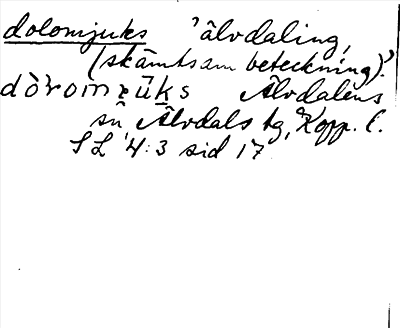 dolomjuks 'älvdaling,
(skämtsam beteckning).'
dòromɛūks Älvdalens
sn Älvdals tg, Kopp. l.
SL 4:3 sid 17